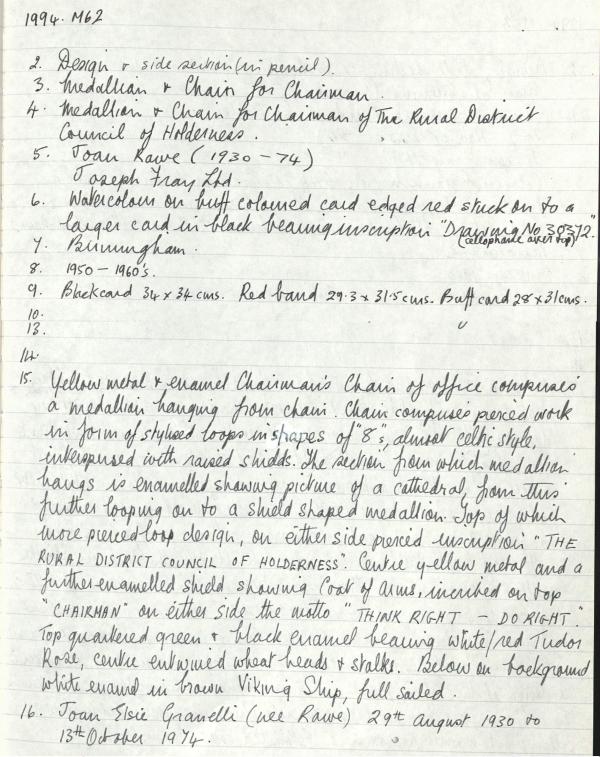 1994. M62
2. Design & side section (in pencil).
3. Medallion & Chain for Chairman.
4. Medallion & Chain for Chairman of The Rural District
Council of Holderness.
5. Joan Rawe (1930 - 74)
Joseph Fray Ltd.
6. Watercolour on buff coloured card edged red stuck on to a
larger card in black bearing inscription "Drawing No 30372."
(cellophane over top)
7. Birmingham.
8. 1950 - 1960's.
9. Blackcard 34 x 34 cms. Red band 29.3 x 31.5 cms. Buff card 28 x 31 cms.
10.
13.
14.
15. Yellow metal & enamel Chairman's Chain of office comprises
a medallion hanging from chain. Chain comprises pierced work
in form of stylised loops in shapes of "8"s, almost celtic style,
interspersed with raised shields. The section from which medallion
hangs is enamelled showing picture of a cathedral, from this
further looping on to a shield shaped medallion. Top of which
more pierced loop design, on either side pierced inscription "THE
RURAL DISTRICT COUNCIL OF HOLDERNESS". Centre yellow metal and a
further enamelled shield showing Coat of Arms, incribed on top
"CHAIRMAN" on either side the motto "THINK RIGHT - DO RIGHT."
Top quartered green & black enamel bearing white/red Tudor
Rose, centre entwined wheat heads & stalks. Below on background
white enamel in brown Viking Ship, full sailed.
16. Joan Elsie Granelli (nee Rawe) 29th August 1930 to
13th October 1974.